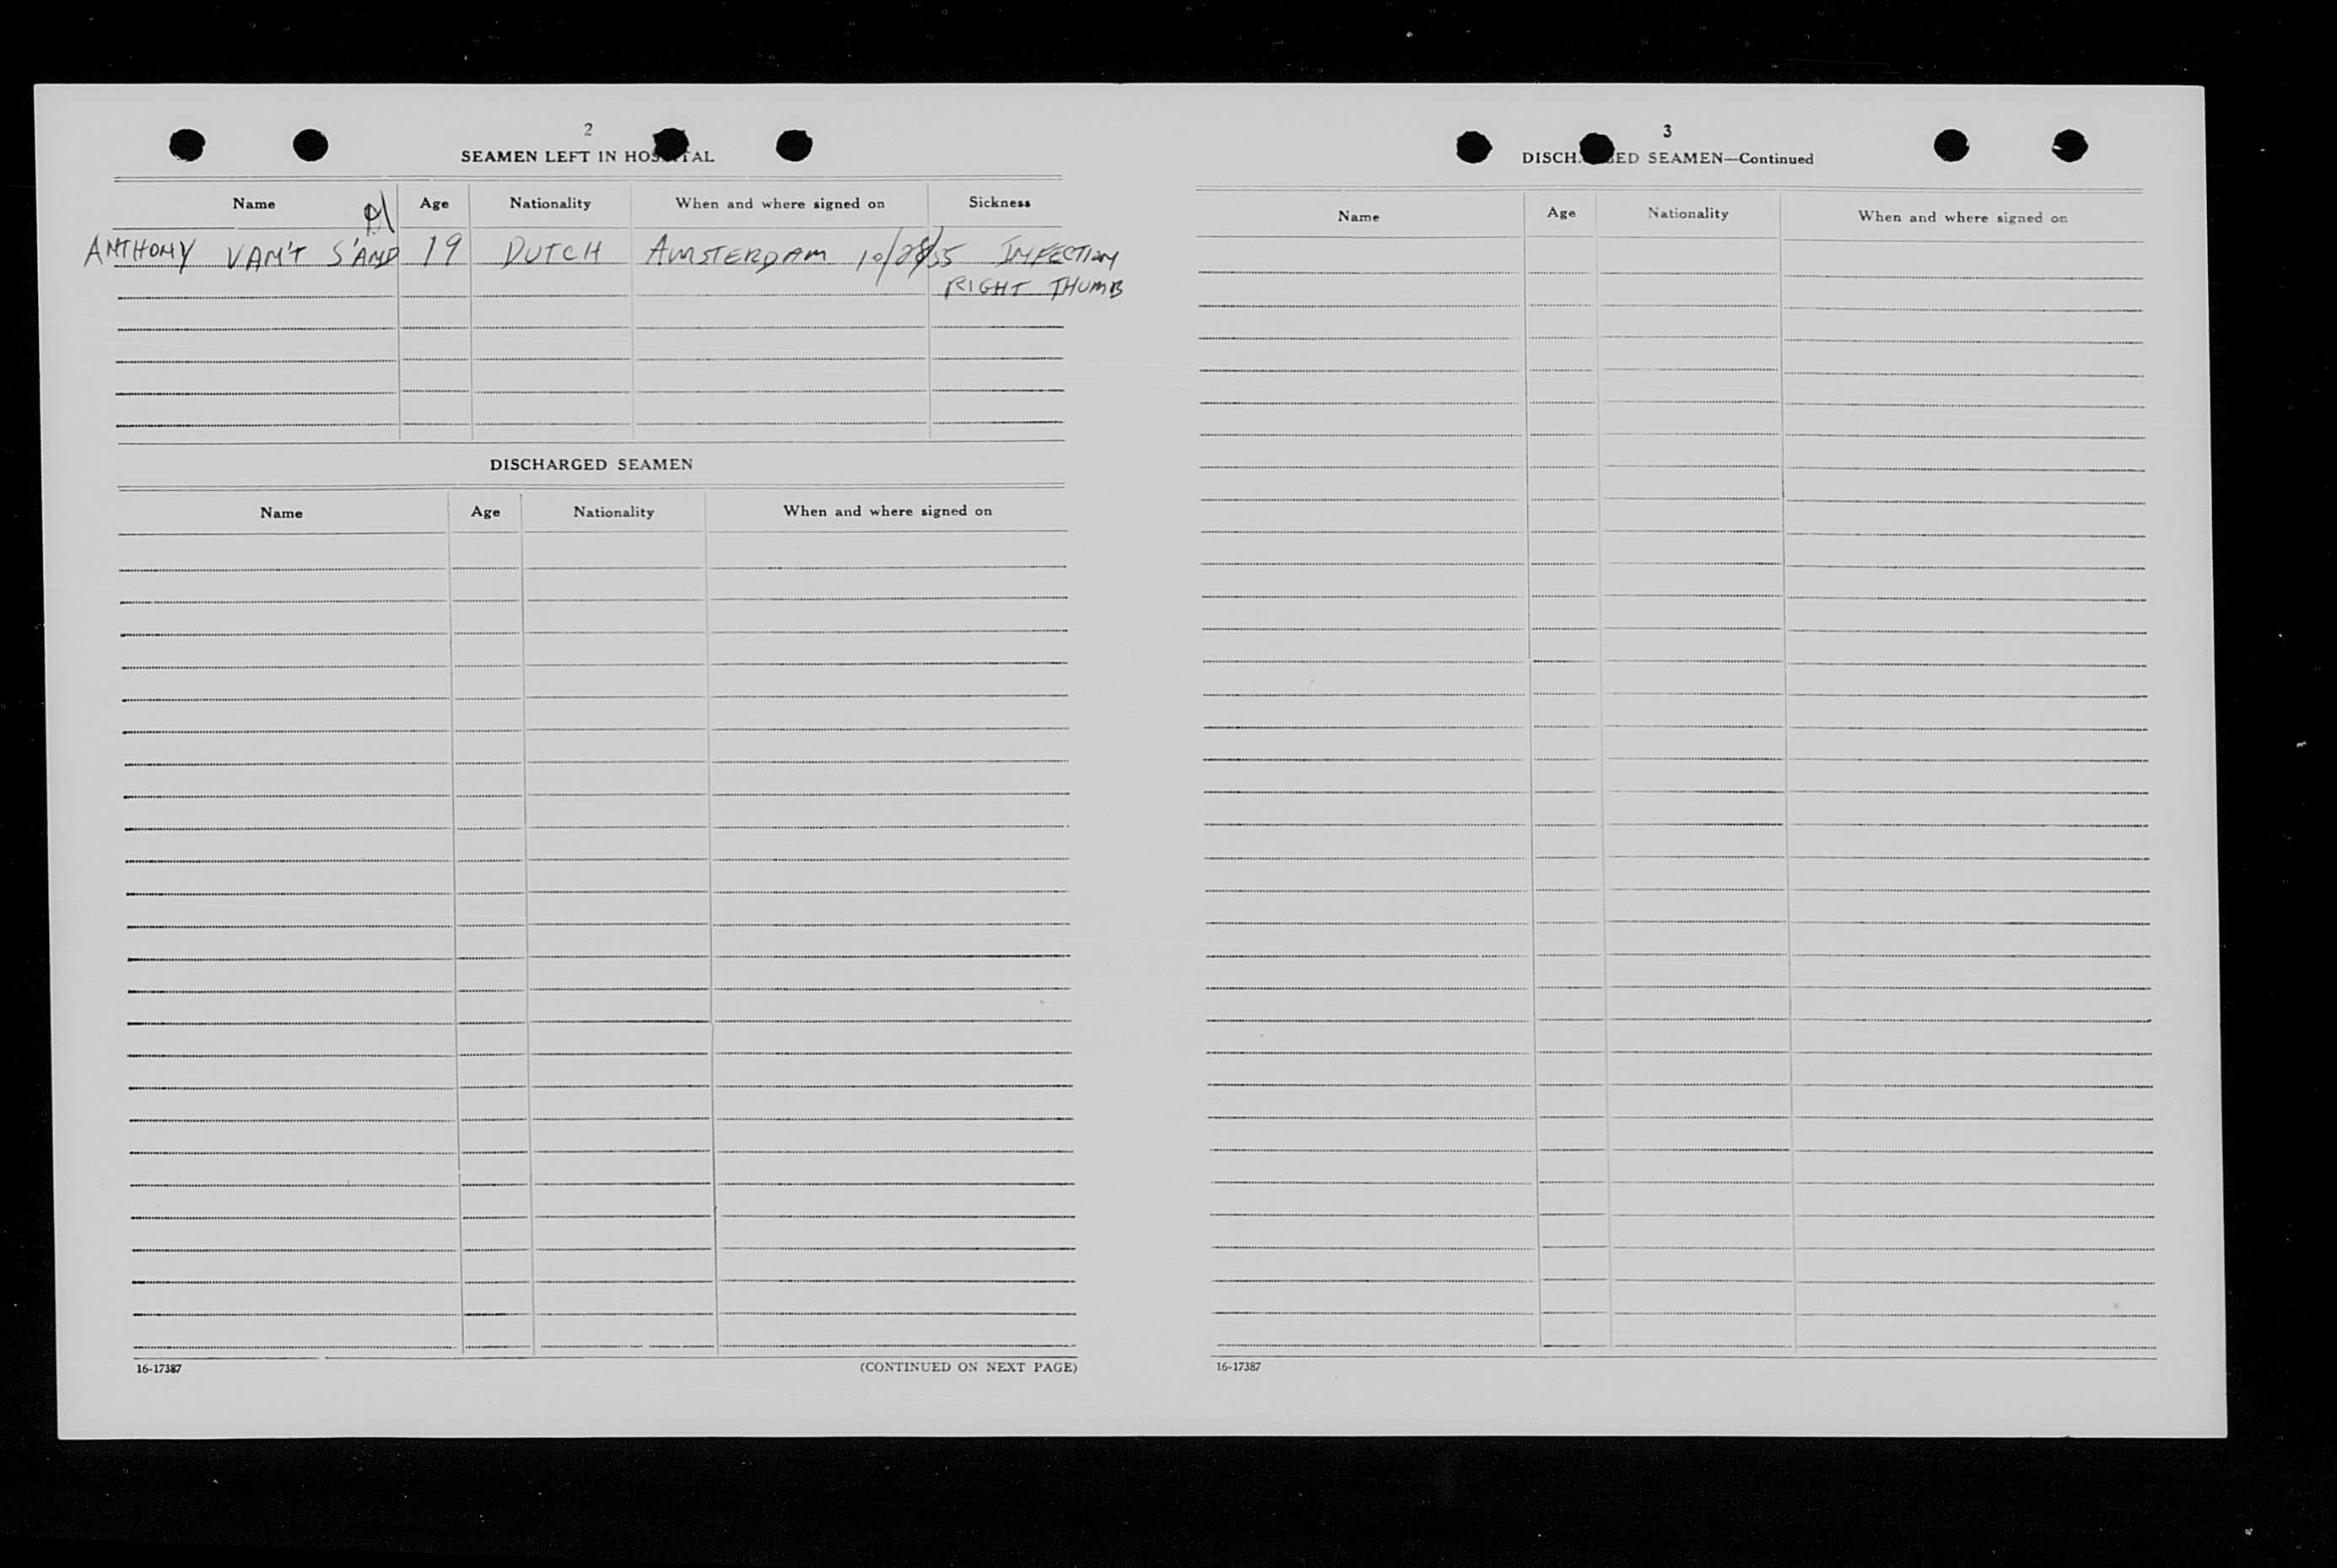 2
SEAMEN LEFT IN HOSPITAL
Name Age Nationality When and where signed on Sickness
ANTHONY VAN'T S'AND 19 DUTCH AMSTERDAM 10/28/55 INFECTION
RIGHT THUMB
DISCHARGED SEAMEN
Name Age Nationality When and where signed on
16-17387 (CONTINUED ON NEXT PAGE)
3
DISCHARGED SEAMEN—Continued
Name Age Nationality When and where signed on
16-17387